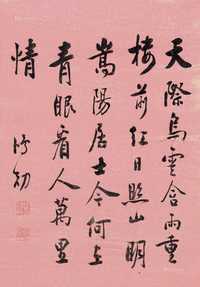 天際烏雲含雨重
樓前紅日照山明
嵩陽居士今何在
青眼看人萬里
情